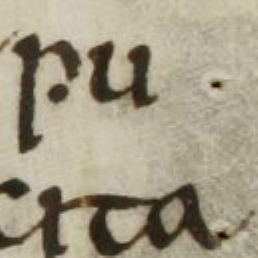 pu
cita